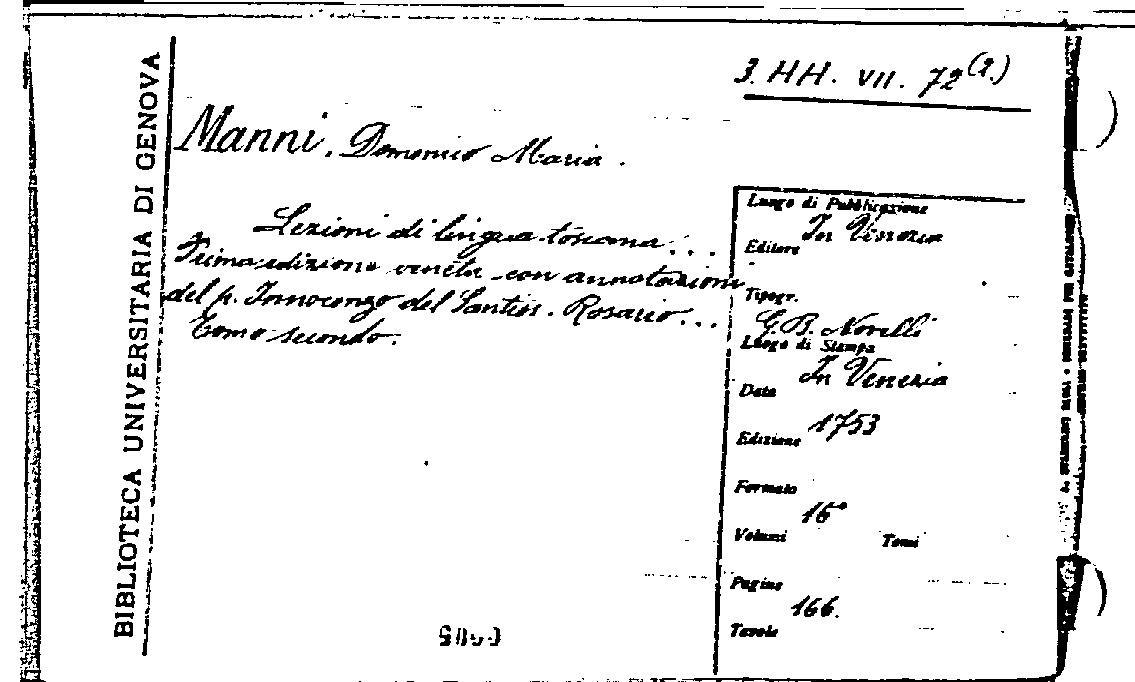 BIBLIOTECA UNIVERSITARIA DI GENOVA
3. HH. VII. 72 (2.)
Manni, Domenico Maria.
Lezioni di lingua toscana...
Prima edizione veneta con annotazioni
del p. Innocenzo del Santiss. Rosario...
Tomo secondo.
Luogo di Pubblicazione
In Venezia
Editore
Tipogr.
G. B. Novelli
Luogo di Stampa
In Venezia
Data
1753
Edizione
Formato
16°
Volumi Tomi
Pagine
166.
Tavole